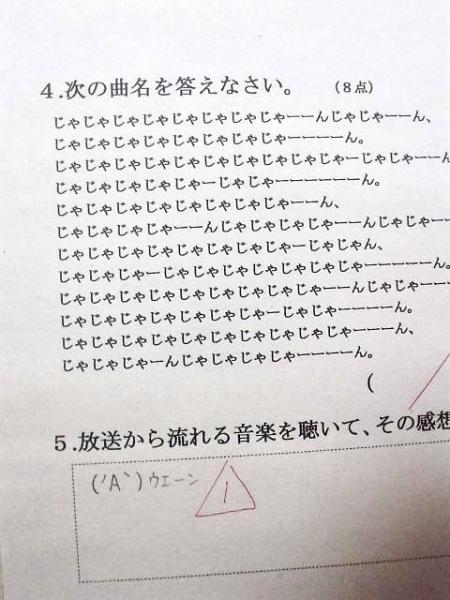 4.次の曲名を答えなさい。 (8点)
じゃじゃじゃじゃじゃじゃじゃじゃーーんじゃじゃーーん、
じゃじゃじゃじゃじゃじゃじゃじゃーーーーん。
じゃじゃじゃじゃじゃじゃじゃじゃじゃじゃーじゃじゃーーん
じゃじゃじゃじゃじゃーじゃじゃーーーーーーん。
じゃじゃじゃじゃじゃじゃじゃじゃーーん、
じゃじゃじゃじゃーーんじゃじゃじゃじゃーーんじゃじゃーー
じゃじゃじゃじゃじゃじゃじゃじゃーじゃじゃん、
じゃじゃじゃーじゃじゃじゃじゃじゃじゃじゃーーーーーん。
じゃじゃじゃじゃじゃじゃじゃじゃじゃーーんじゃーーー
じゃじゃじゃじゃじゃじゃじゃーじゃじゃーーーーん。
じゃじゃじゃじゃじゃじゃじゃじゃじゃじゃーーーん、
じゃじゃじゃーんじゃじゃじゃじゃーーーーん。
(
5.放送から流れる音楽を聴いて、その感想
('A`)ウエーン
1